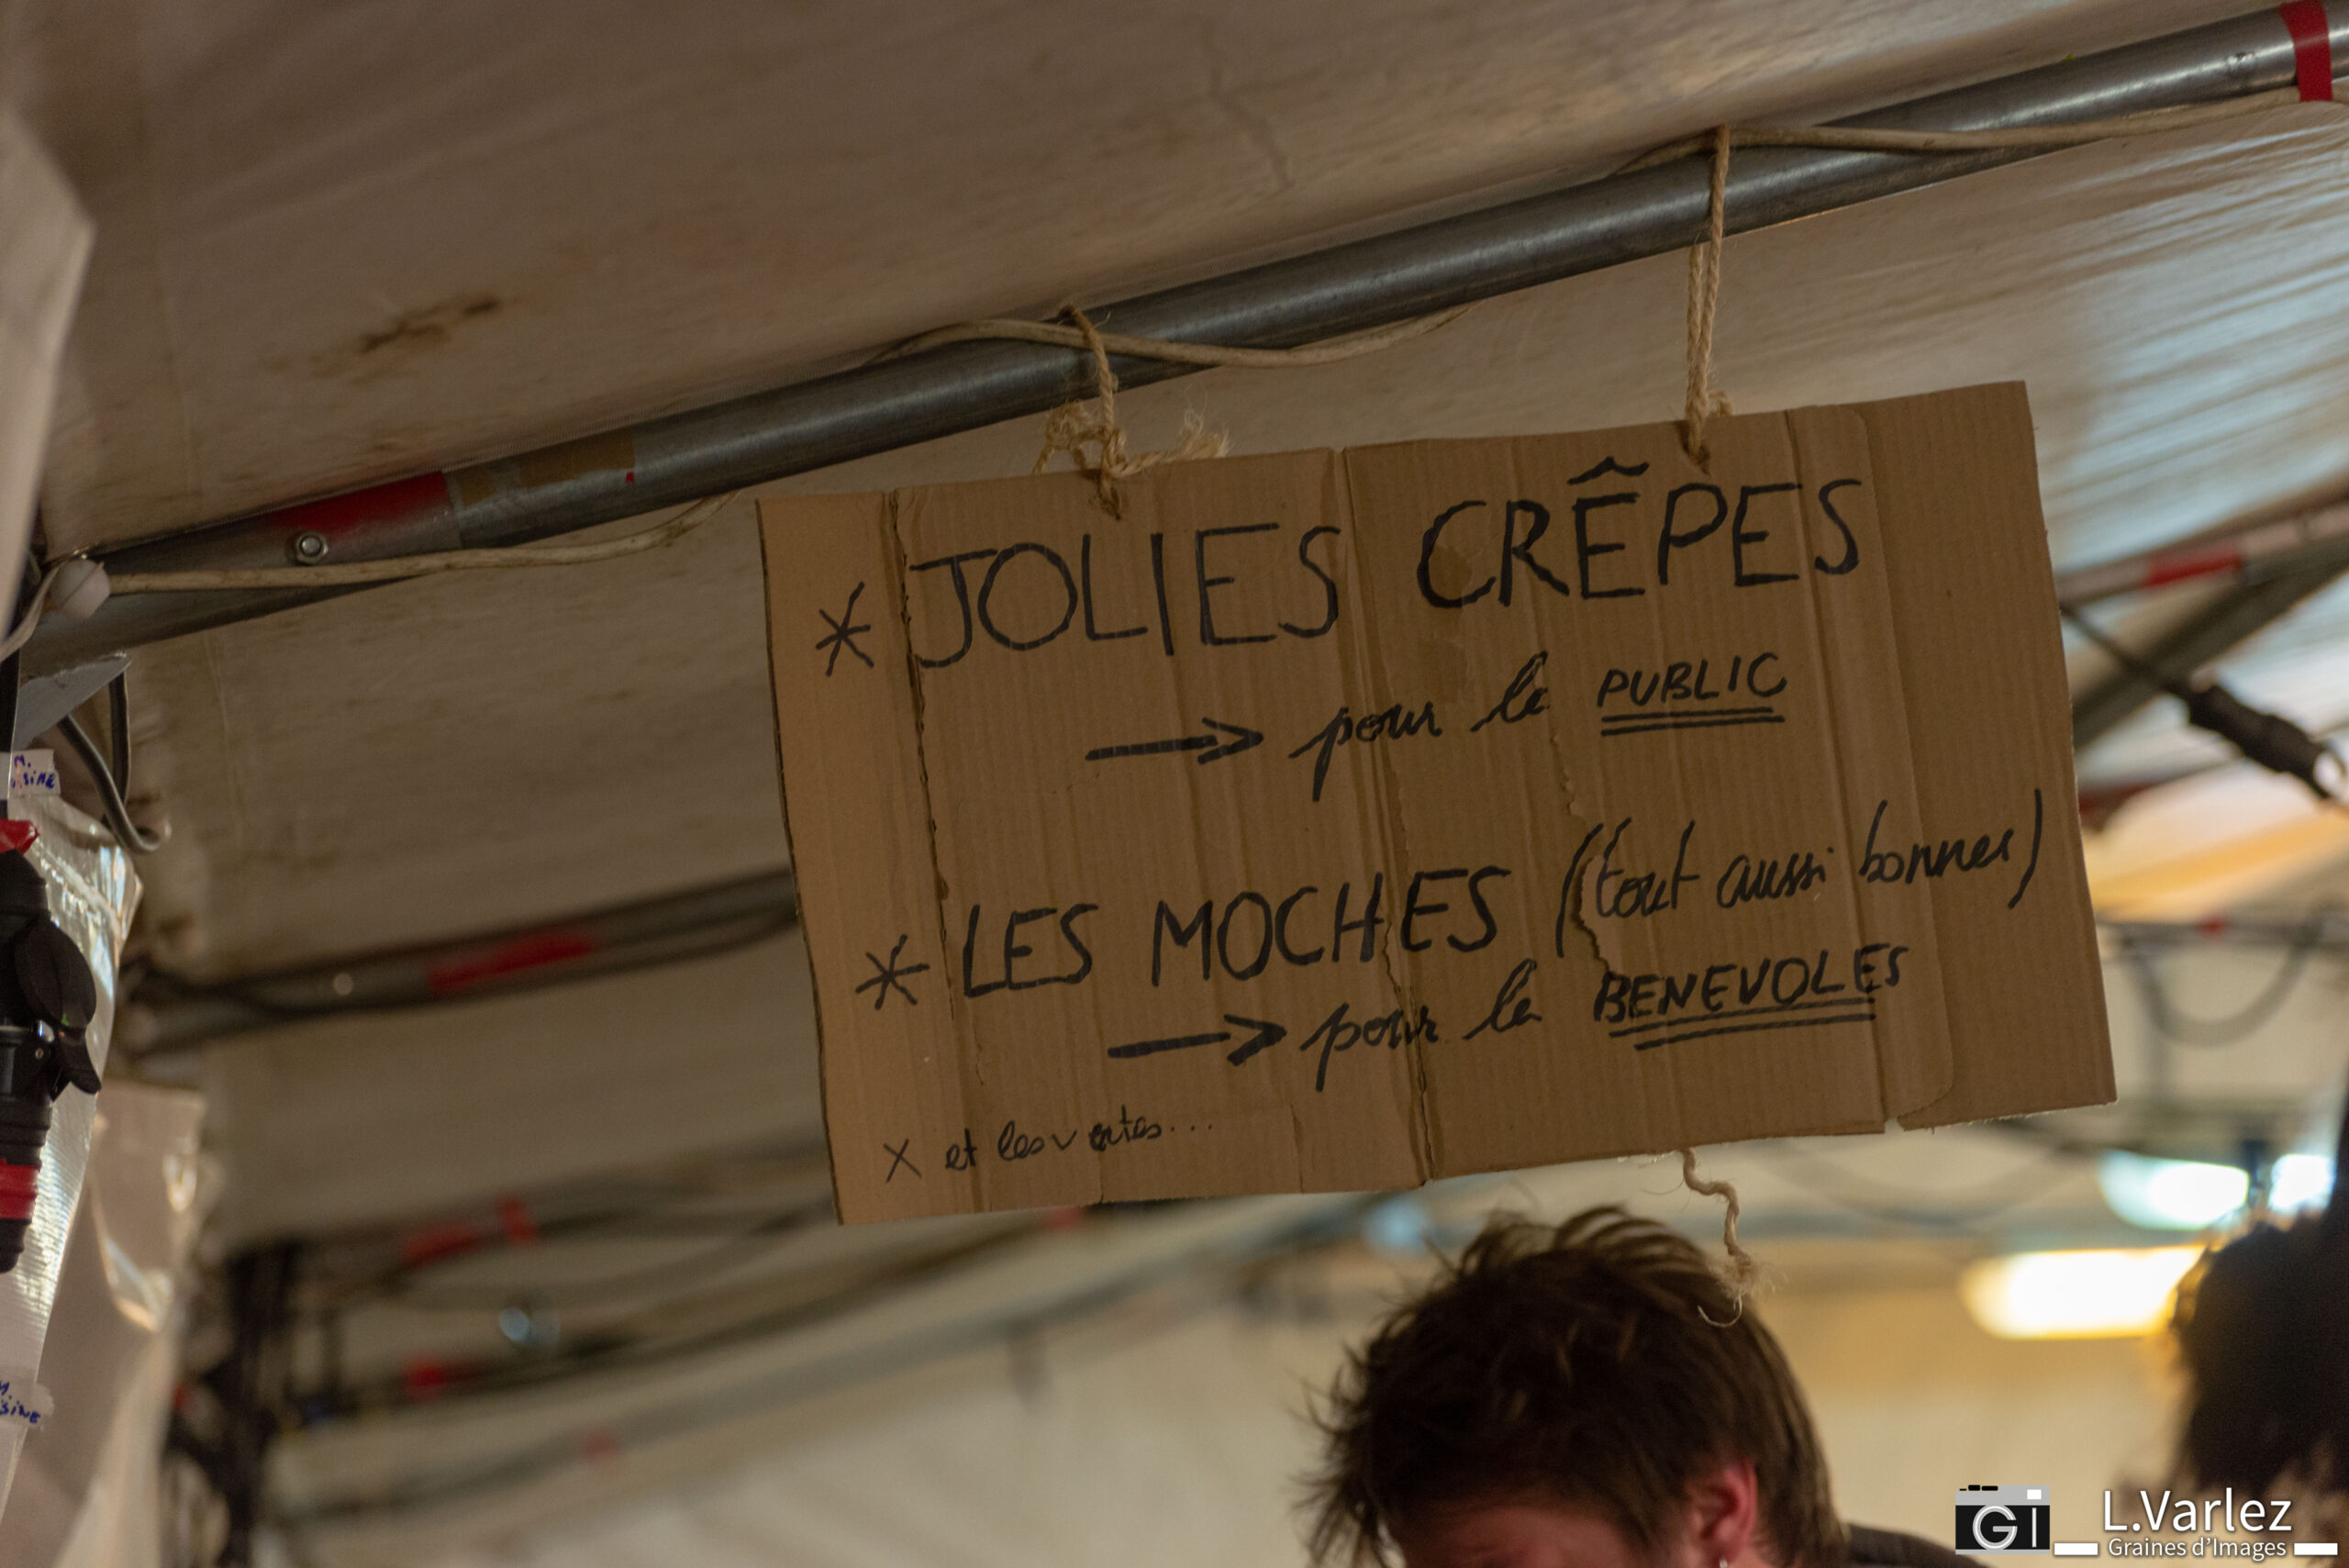 * JOLIES CRÊPES
→ pour le PUBLIC
* LES MOCHES (tout aussi bonnes)
→ pour le BENEVOLES
x et les ventes...
GI
L.Varlez
Graines d'Images